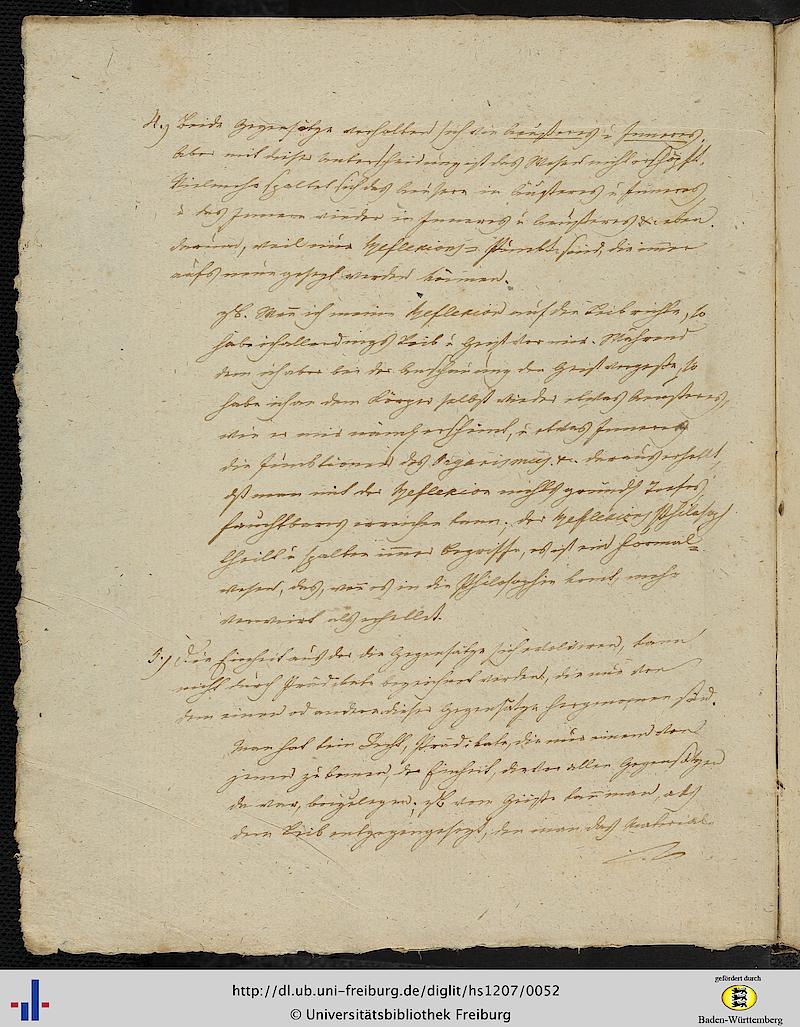 4.) Beide Gegensätze verhalten sich wie Äußeres u Inneres.
Aber mit dieser Unterscheidung ist das Wesen nicht erschöpft.
Vielmehr spaltet sich das Äußere in Äußeres u Inneres
u das Innere wieder in Inneres u Äußeres &c eben
darum, weil nur Reflexions=Punkte sind, die immer
aufs neue gesezt werden können.
zB. Wenn ich meine Reflexion auf den Leib richte, so
habe ich allerdings Leib u Geist vor mir. Während
dem ich aber bei der Anschauung den Geist vergeße, so
habe ich an dem Körper selbst wieder etwas Aeusseres,
wie er mir nämlich erscheint, u etwas Inneres
die Funktionen des Organismus &c. daraus erhellt,
daß man mit der Reflexion nichts
fruchtbares erreichen kann; der Reflexions Philosoph
theilt u spaltet immer Begriffe, es ist ein Formal=
wesen, das, wenn es in die Philosophie komt, mehr
verwirrt als erhellet.
5.) Die Einheit aus der die Gegensätze sich evolviren, kann
nicht durch Prädikate bezeichnet werden, die nur von
dem einen od andern dieser Gegensätze hergenommen sind.
Man hat kein Recht, Prädikate, die nur einem von
jenen zukommen, der Einheit, die vor allen Gegensätzen
da war, beizulegen; zB vom Geiste kann man, als
dem Leib entgegengesezt, den man das Material
http://dl.ub.uni-freiburg.de/diglit/hs1207/0052
© Universitätsbibliothek Freiburg
gefördert durch
Baden-Württemberg